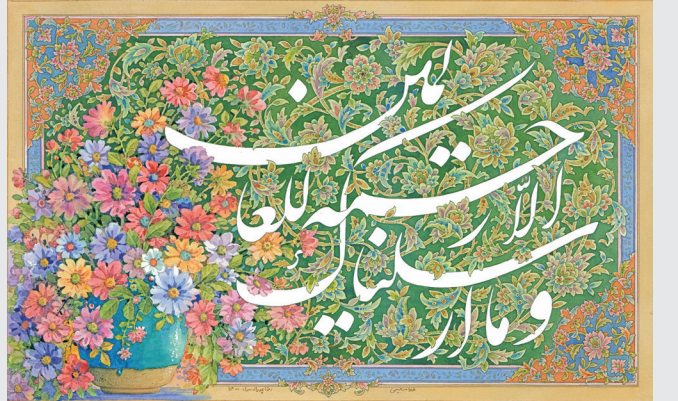 وما ارسلناک
الا رحمة للعالمین